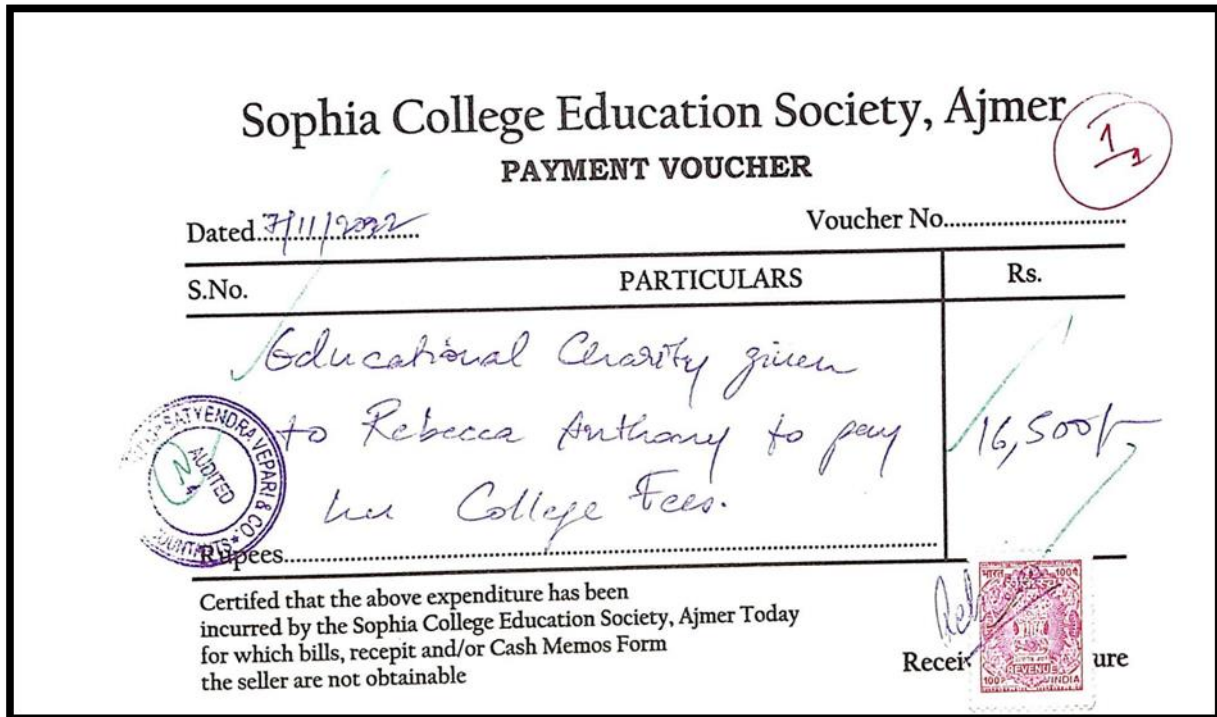 Sophia College Education Society, Ajmer
1/1
PAYMENT VOUCHER
Dated 7/11/2022 Voucher No.
S.No. PARTICULARS Rs.
Educational Charity given
to Rebecca Anthony to pay 16,500/-
her College Fees.
SATYENDRA VEPARI & CO.
AUDITED
Rupees
Certifed that the above expenditure has been
incurred by the Sophia College Education Society, Ajmer Today
for which bills, recepit and/or Cash Memos Form
the seller are not obtainable
भारत 100
REVENUE
INDIA
Receiv ure